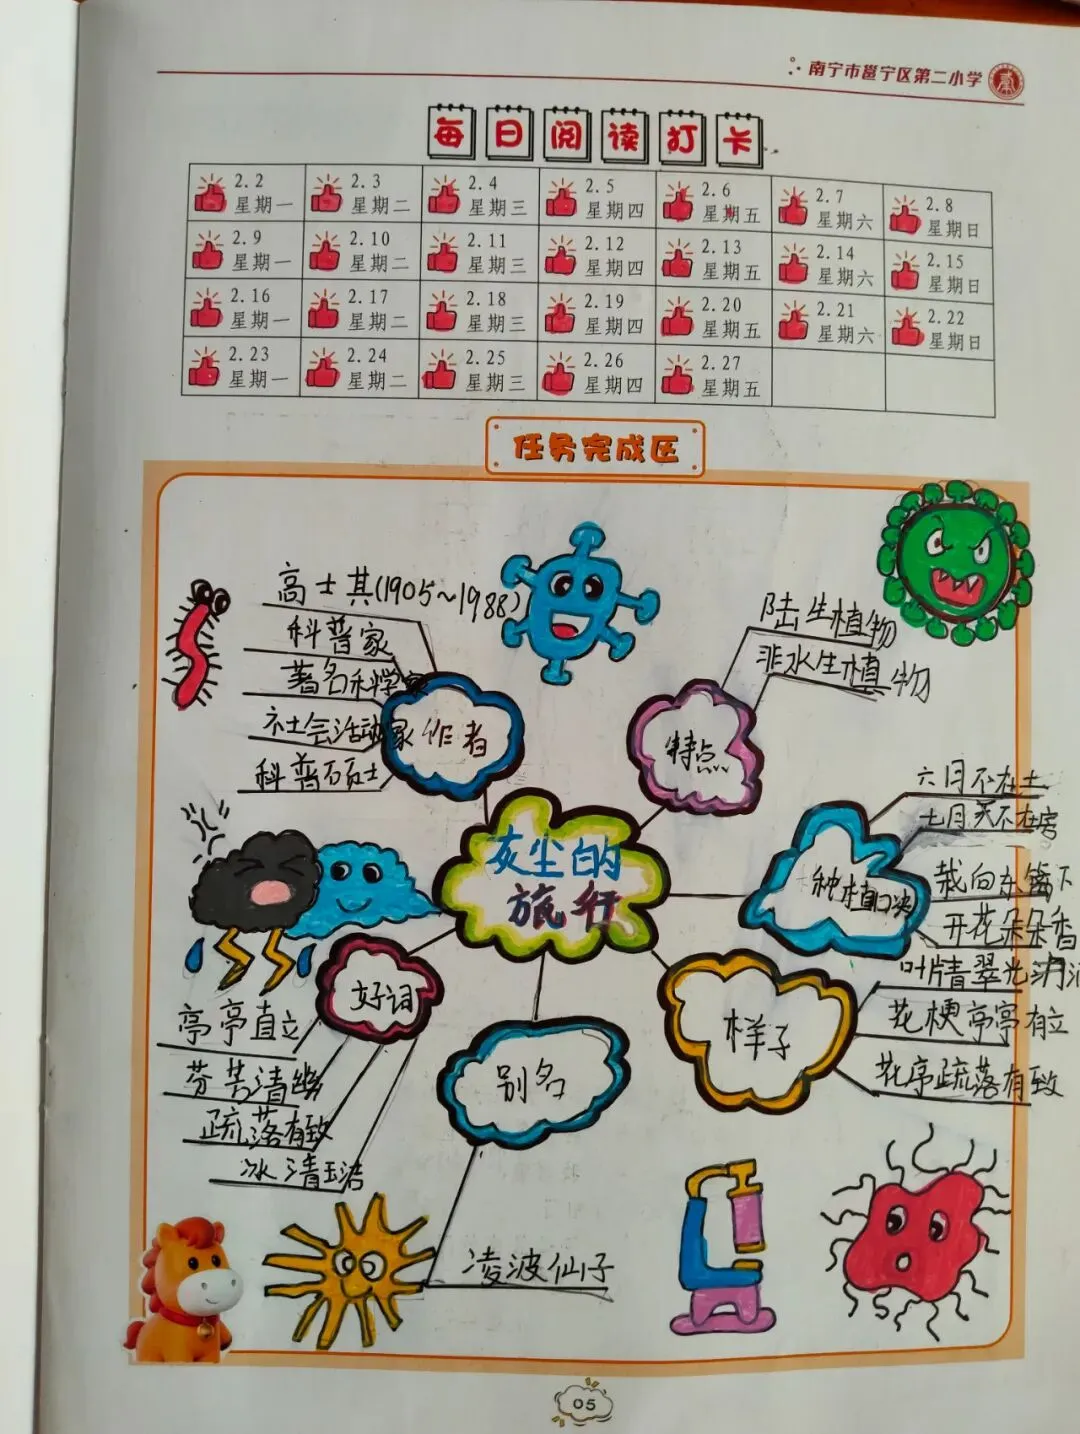 南宁市邕宁区第二小学
每日阅读打卡
2.2 星期一
2.3 星期二
2.4 星期三
2.5 星期四
2.6 星期五
2.7 星期六
2.8 星期日
2.9 星期一
2.10 星期二
2.11 星期三
2.12 星期四
2.13 星期五
2.14 星期六
2.15 星期日
2.16 星期一
2.17 星期二
2.18 星期三
2.19 星期四
2.20 星期五
2.21 星期六
2.22 星期日
2.23 星期一
2.24 星期二
2.25 星期三
2.26 星期四
2.27 星期五
任务完成区
高士其(1905~1988)
科普家
著名科学家
社会活动家
科普硕士
作者
陆生植物
非水生植物
特点
灰尘的
旅行
六月不在土
七月天不在房
栽向东篱下
开花朵朵香
种植口诀
叶片青翠光
花梗亭亭有立
花序疏落有致
样子
好词
亭亭直立
芬芳清幽
疏落有致
冰清玉洁
别名
凌波仙子
05